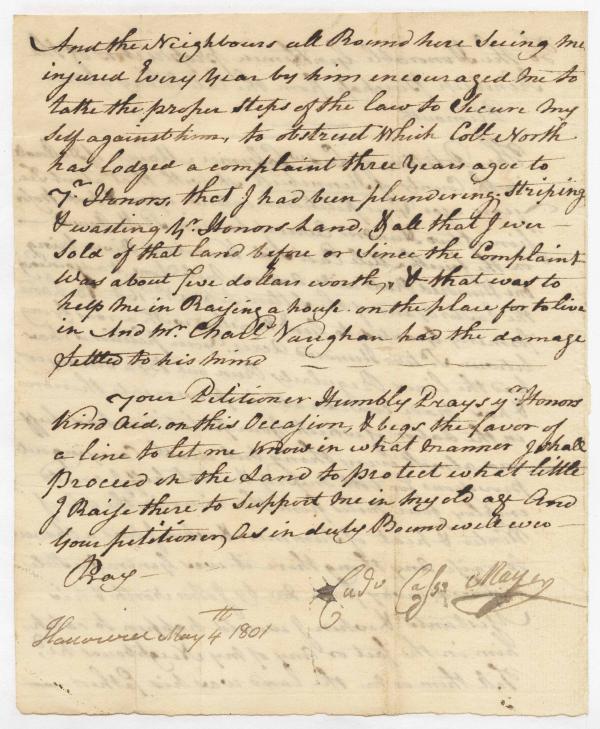 And the Neighbours all Round here Seing me
injured Every Year by him encouraged me to
take the proper Steps of the law to Secure my
self against him, to obstruct Which Coll. North
has lodged a complaint three Years agoe to
Yr. Honors, that I had been plundering, Striping
& wasting Yr. Honors Land, & all that I ever
Sold of that land before or Since the Complaint
Was about five dollars worth, & that was to
help me in Raising a house on the place for to live
in And Mr. Chals. Vaughan had the damage
Settled to his mind
Your Petitioner Humbly Prays yr. Honors
Kind Aid on this Occasion, & begs the favor of
a line to let me Know in what manner I shall
Proceed on the Land to protect what little
I Raise there to Support Me in My old age And
Your petitioner, As in duty Bound will ever
Pray
Mayer
May 4th 1801